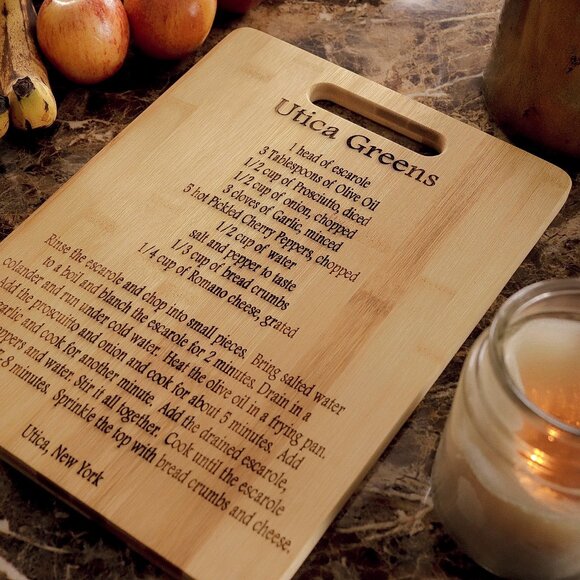 Utica Greens
1 head of escarole
3 Tablespoons of Olive Oil
1/2 cup of Prosciuto, diced
1/2 cup of onion, chopped
3 cloves of Garlic, minced
5 hot Pickled Cherry Peppers, chopped
1/2 cup of water
salt and pepper to taste
1/3 cup of bread crumbs
1/4 cup of Romano cheese, grated
Rinse the escarole and chop into small pieces. Bring salted water
to a boil and blanch the escarole for 2 minutes. Drain in a
colander and run under cold water. Heat the olive oil in a frying pan.
Add the prosciutto and onion and cook for about 5 minutes. Add
garlic and cook for another minute. Add the drained escarole,
peppers and water. Stir it all together. Cook until the escarole
8 minutes. Sprinkle the top with bread crumbs and cheese.
Utica, New York